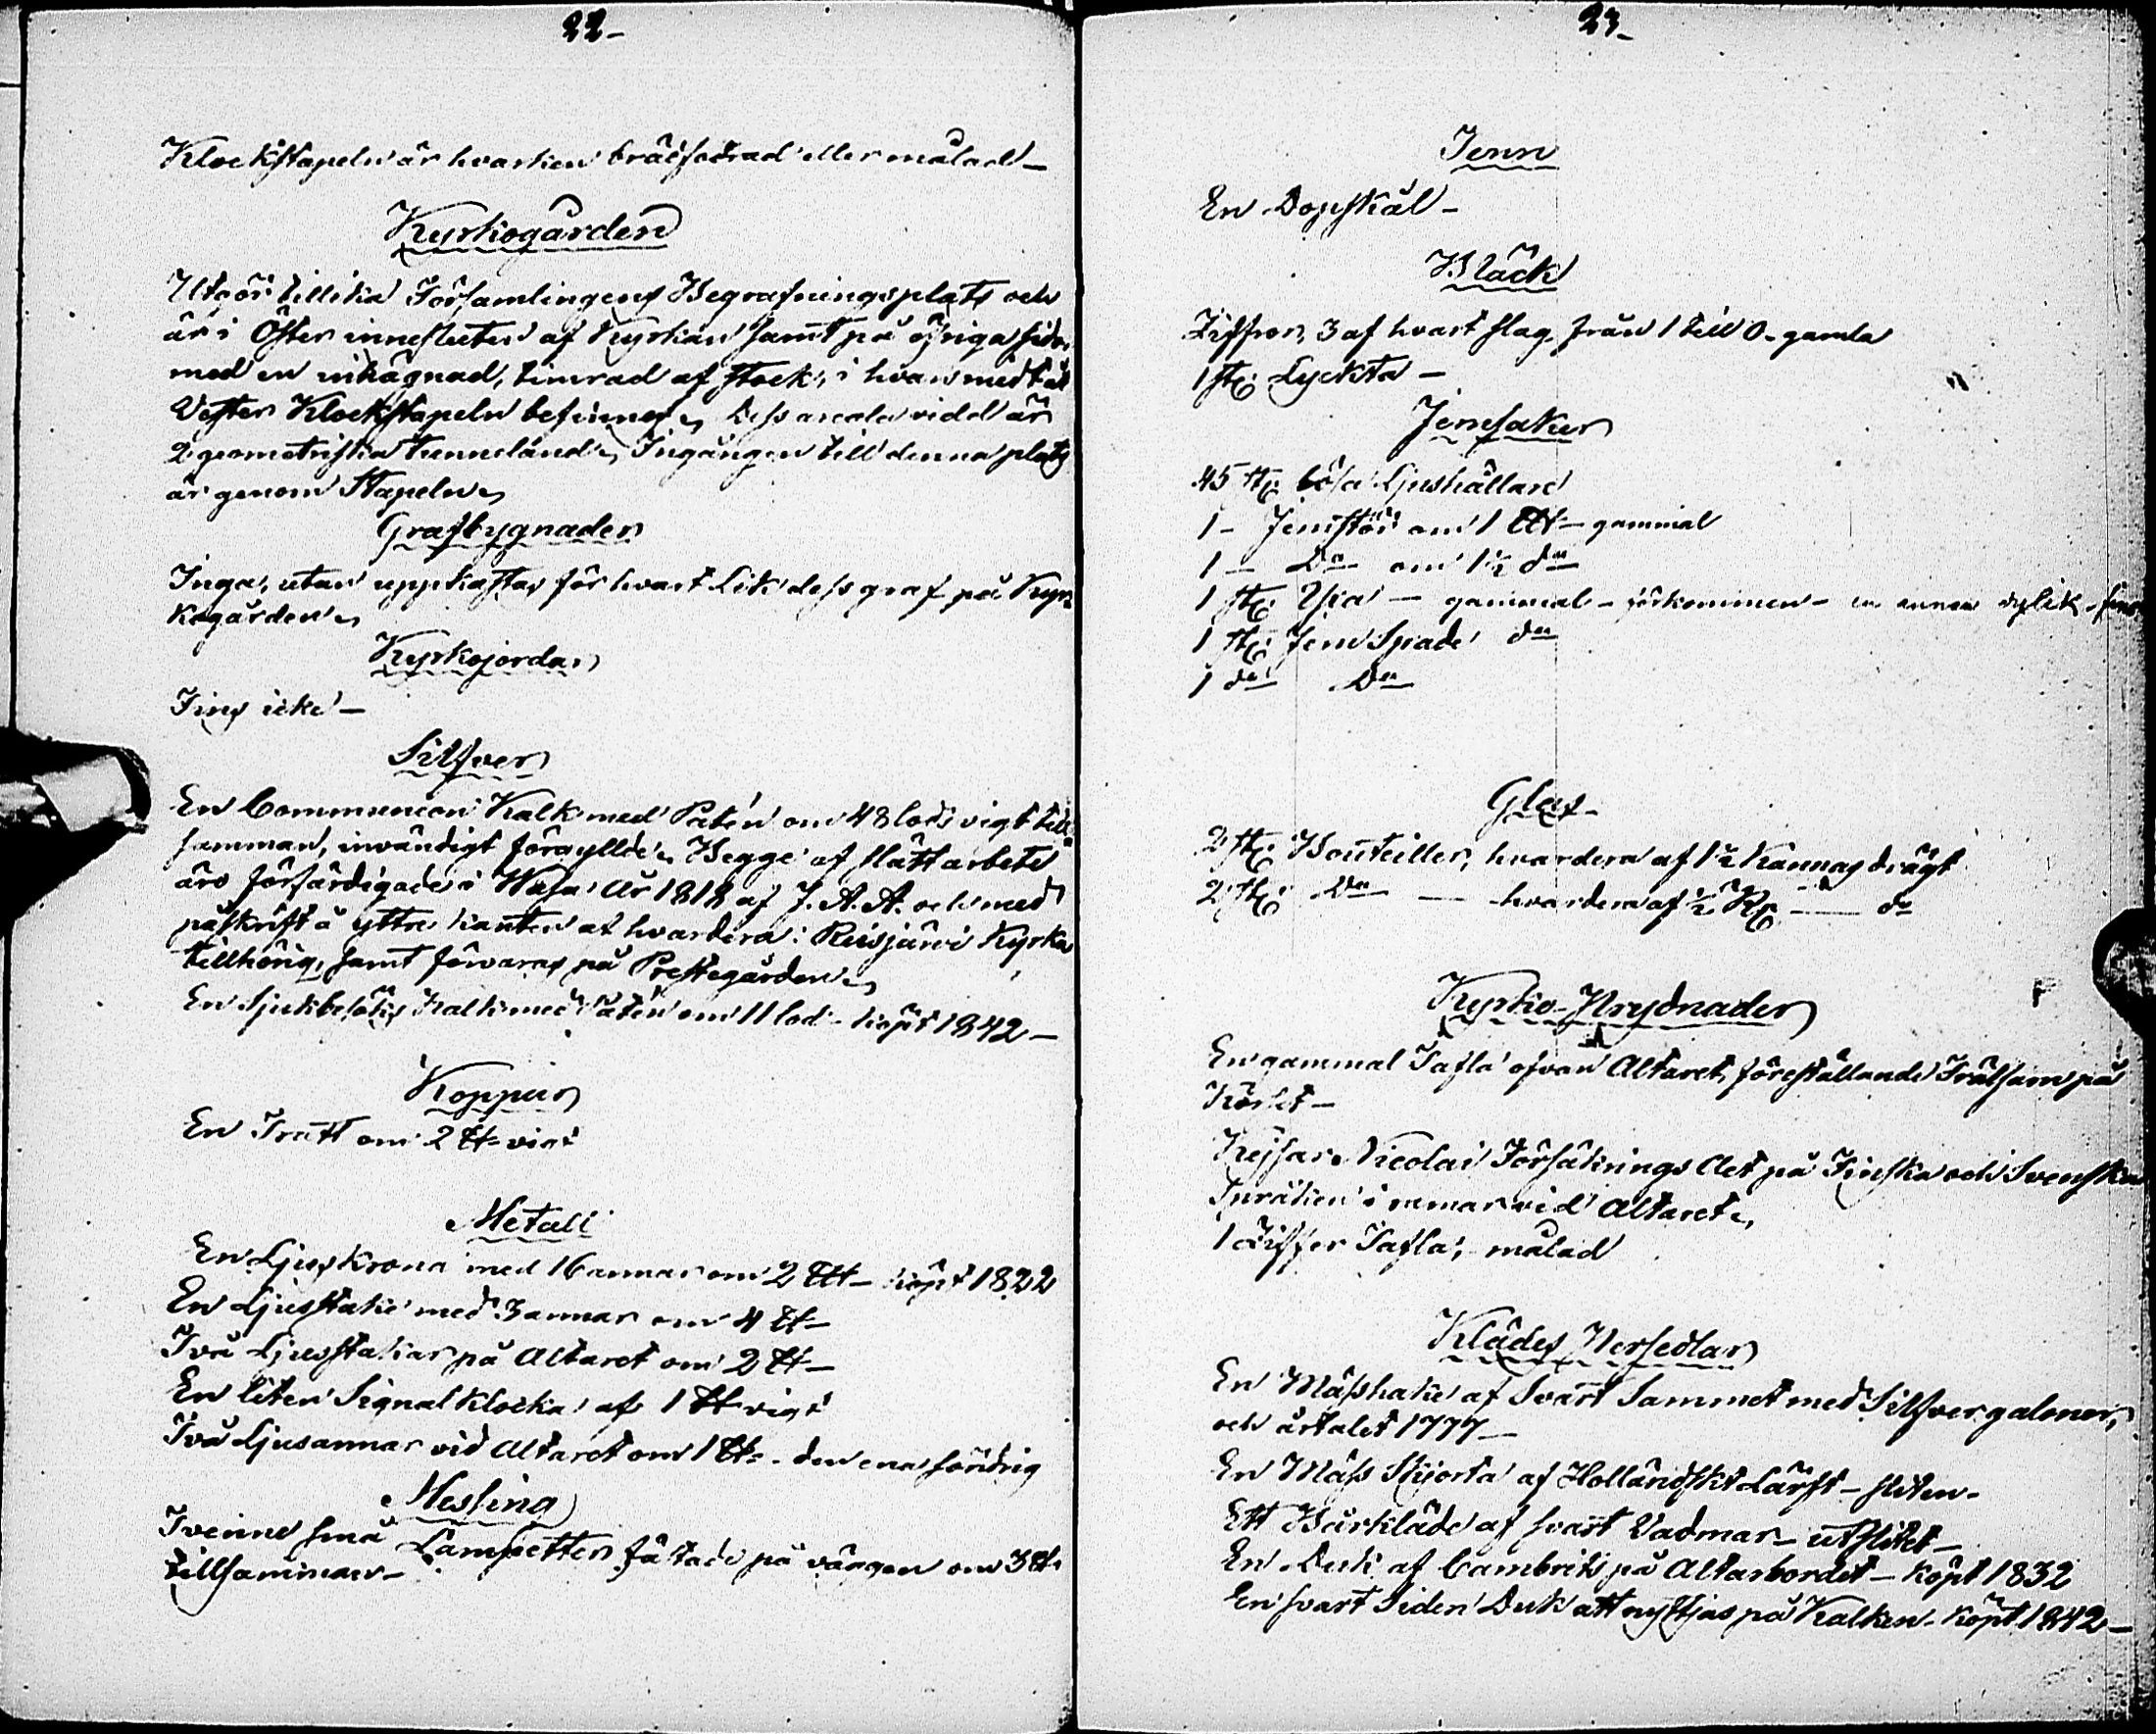 22-
Klockstapeln är hvarken brädfodrad eller målad -
Kyrkogården
Utgör tillika Församlingens Begrafningsplats och
är i Öster innesluten af Kyrkan samt på öfriga sidor
med en inhägnad, timrad af stock, i hvars medt åt
Vester Klockstapeln befinnes, Dess areala vidd är
2 geometriska tunneland, Ingången till denna plats
är genom Stapeln,
Grafbygnader
Inga, utan uppkastas för hvart Lik dess graf på Kyr=
kogården,
Kyrkojordar
Fins icke -
Silfver
En Communion Kalk med Patén om 48 lods vigt till=
samman, invändigt förgyllde, Begge af slätt arbete
äro förfärdigade i Wasa År 1818 af J. A. A. och med
påskrift å yttre kanten af hvardera: Reisjärvi Kyrka
tillhörig, samt förvaras på Prestegården,
En Sjukbesöks Kalk med Patén om 11 lod - köpt 1842 -
Koppar
En Tratt om 2 ℔ vigt
Metall
En Ljuskrona med 16 armar om 2 L℔ - köpt 1822
En Ljusstake med 3 armar om 4 ℔ -
Två Ljusstakar på Altaret om 2 ℔ -
En liten Signal Klocka af 1 ℔ vigt
Två Ljusarmar vid Altaret om 1 ℔ - den ena söndrig
Messing
Tvenne små Lampetter fästade på väggen om 3 ℔
tillsamman -
23-
Tenn
En Dopskål -
Bläck
Ziffror, 3 af hvart slag, från 1 till 0 - gamla
1 st: Lyckta -
Jernsaker
45 st: lösa Ljushållare
1 - Jernstör om 1 L℔ - gammal
1 - Do om 1½ do
1 st: Yxa - gammal - förkommen - en annan dylik
1 st: Jern Spade do
1 do Do
Glas -
2 st: Bouteiller, hvardera af 1½ Kannas drägt
2 st: Do - hvardera af ½ K: - do
Kyrko-Prydnader
En gammal Tafla ofvan Altaret, föreställande Frälsarn på
Korset -
Kejsar Nicolai Försäkrings Act på Finska och Svenska
språken i ramar vid Altaret,
1 Ziffer Tafla, målad
Klädes Persedlar
En Mässhake af Svart Sammet med Silfver galoner,
och årtalet 1777 -
En Mäss Skjorta af Holländskt Lärft - sliten -
Ett Bårkläde af svart Vadmar - utslitet -
En Duk af Cambrik på Altarbordet - köpt 1832
En svart Siden Duk att nyttjas på Kalken - köpt 1842 -